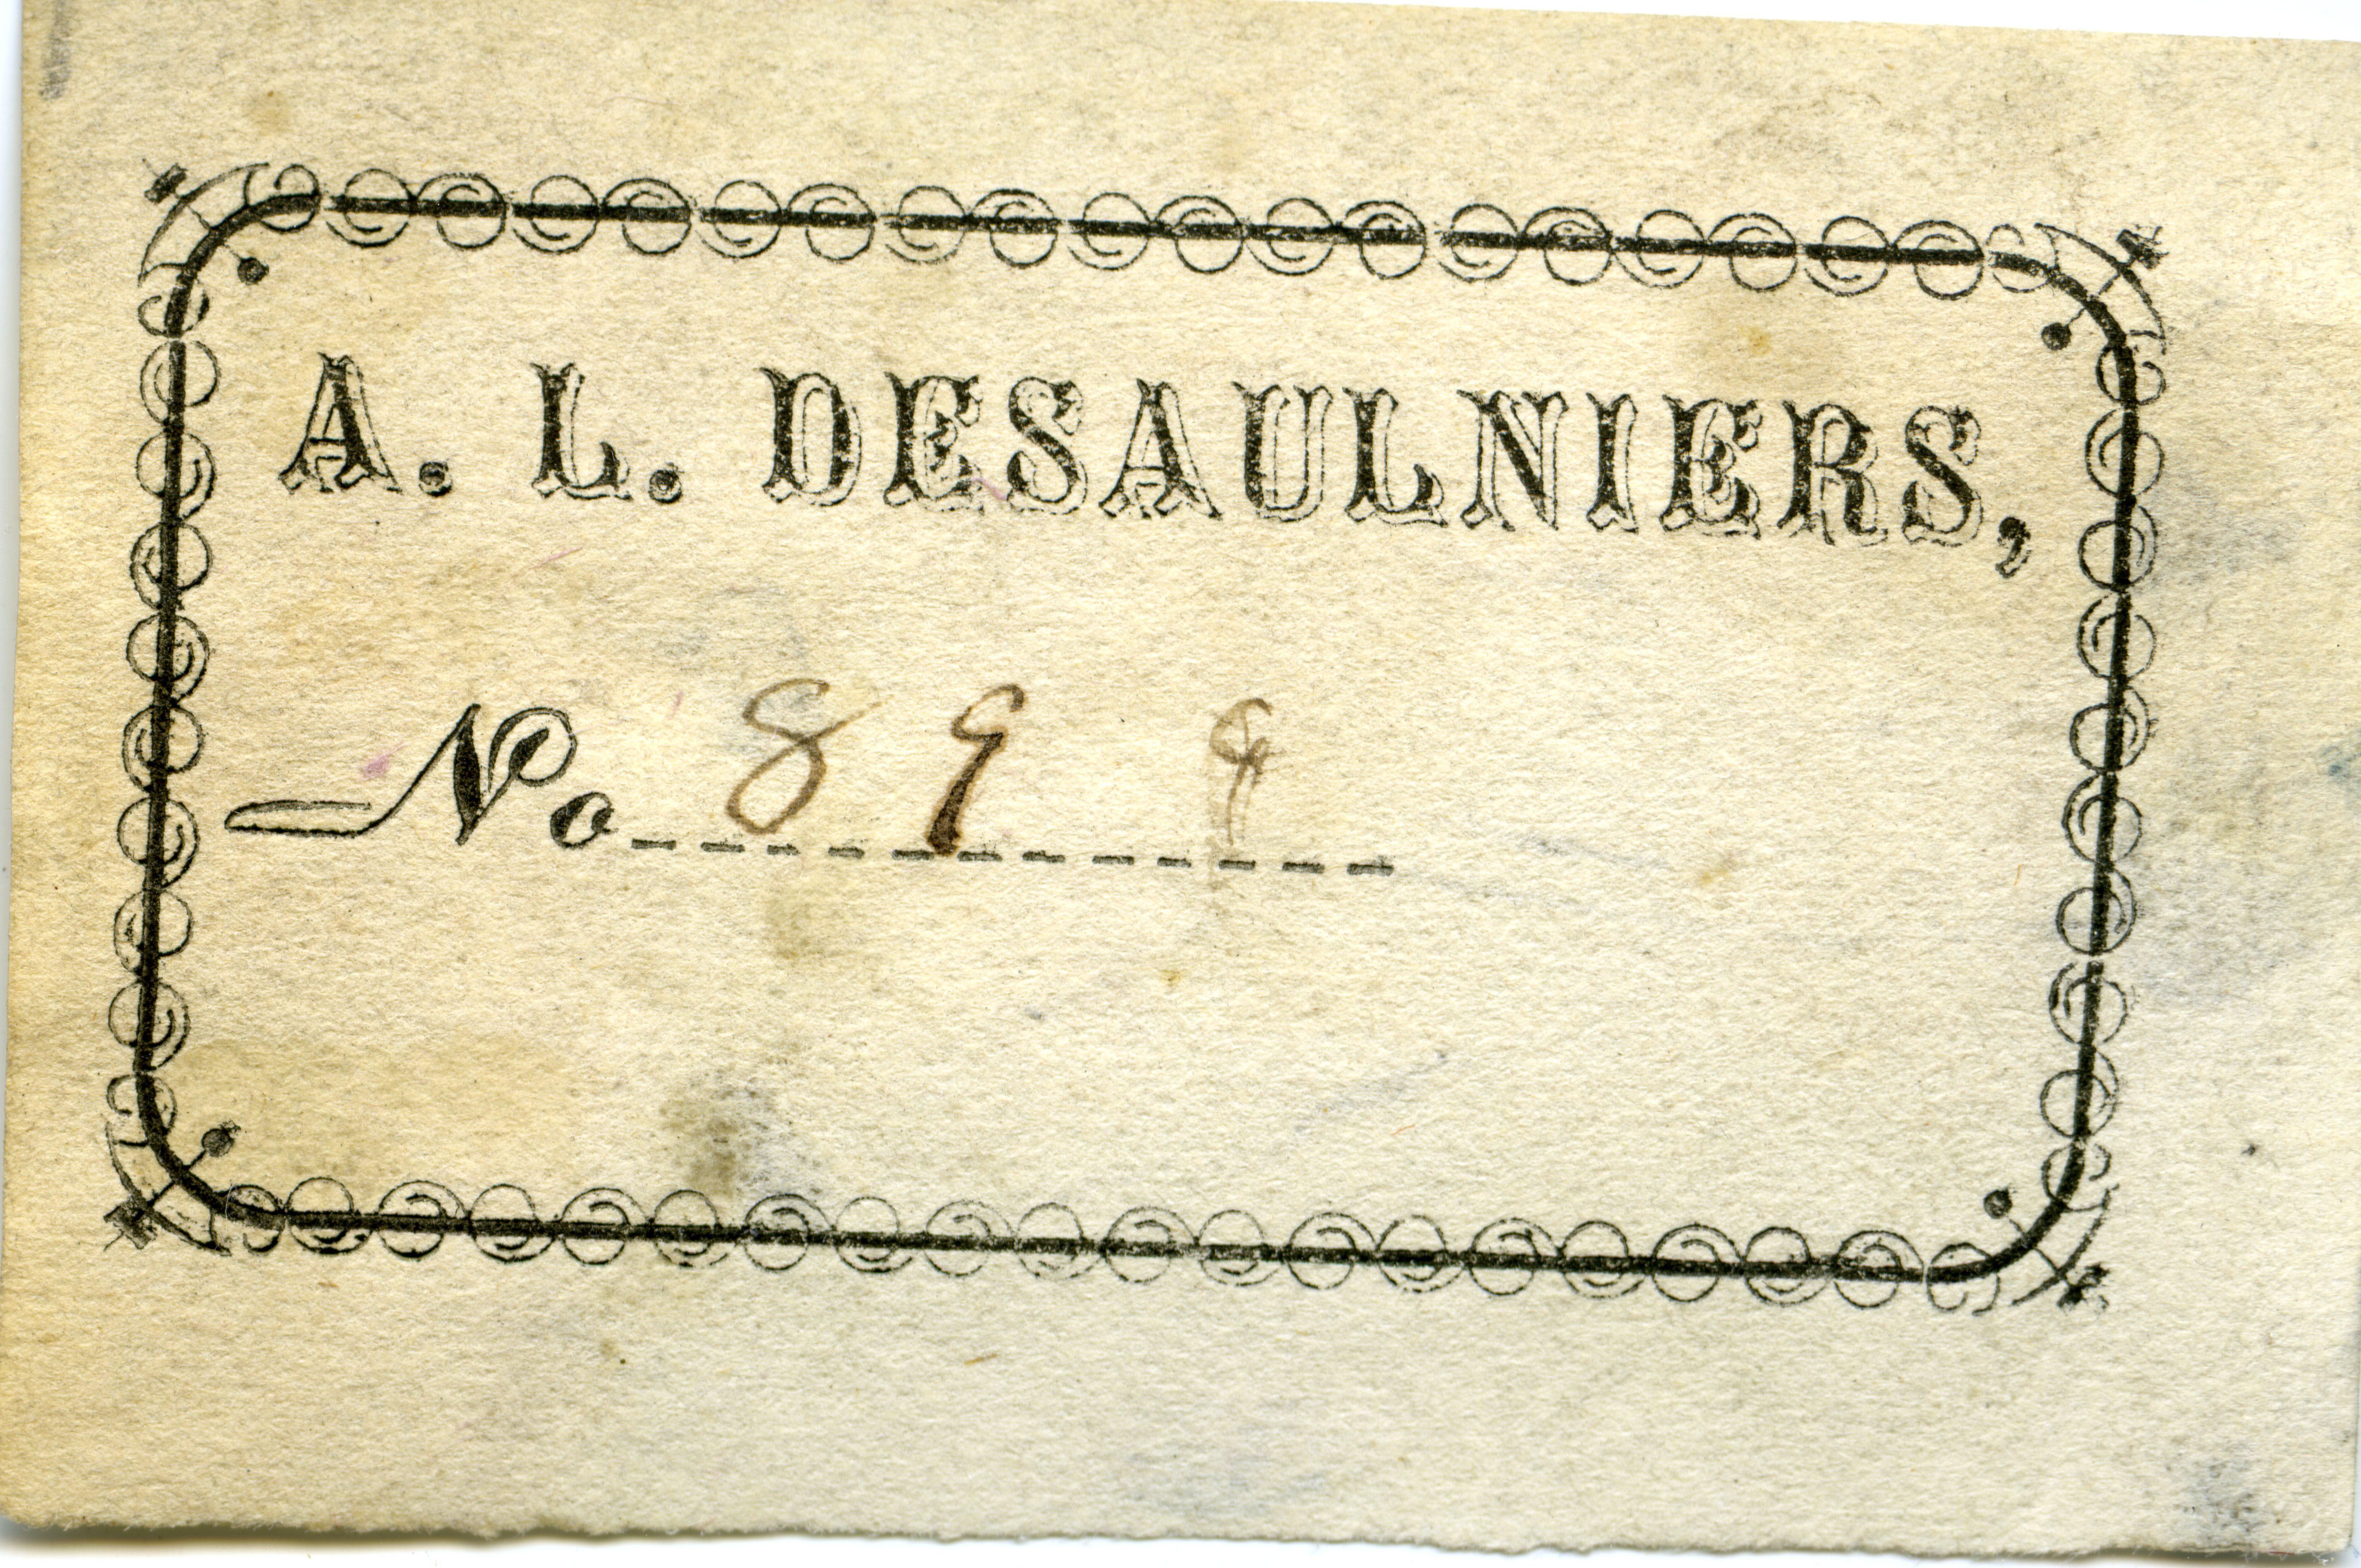 A. L. DESAULNIERS,
No 899